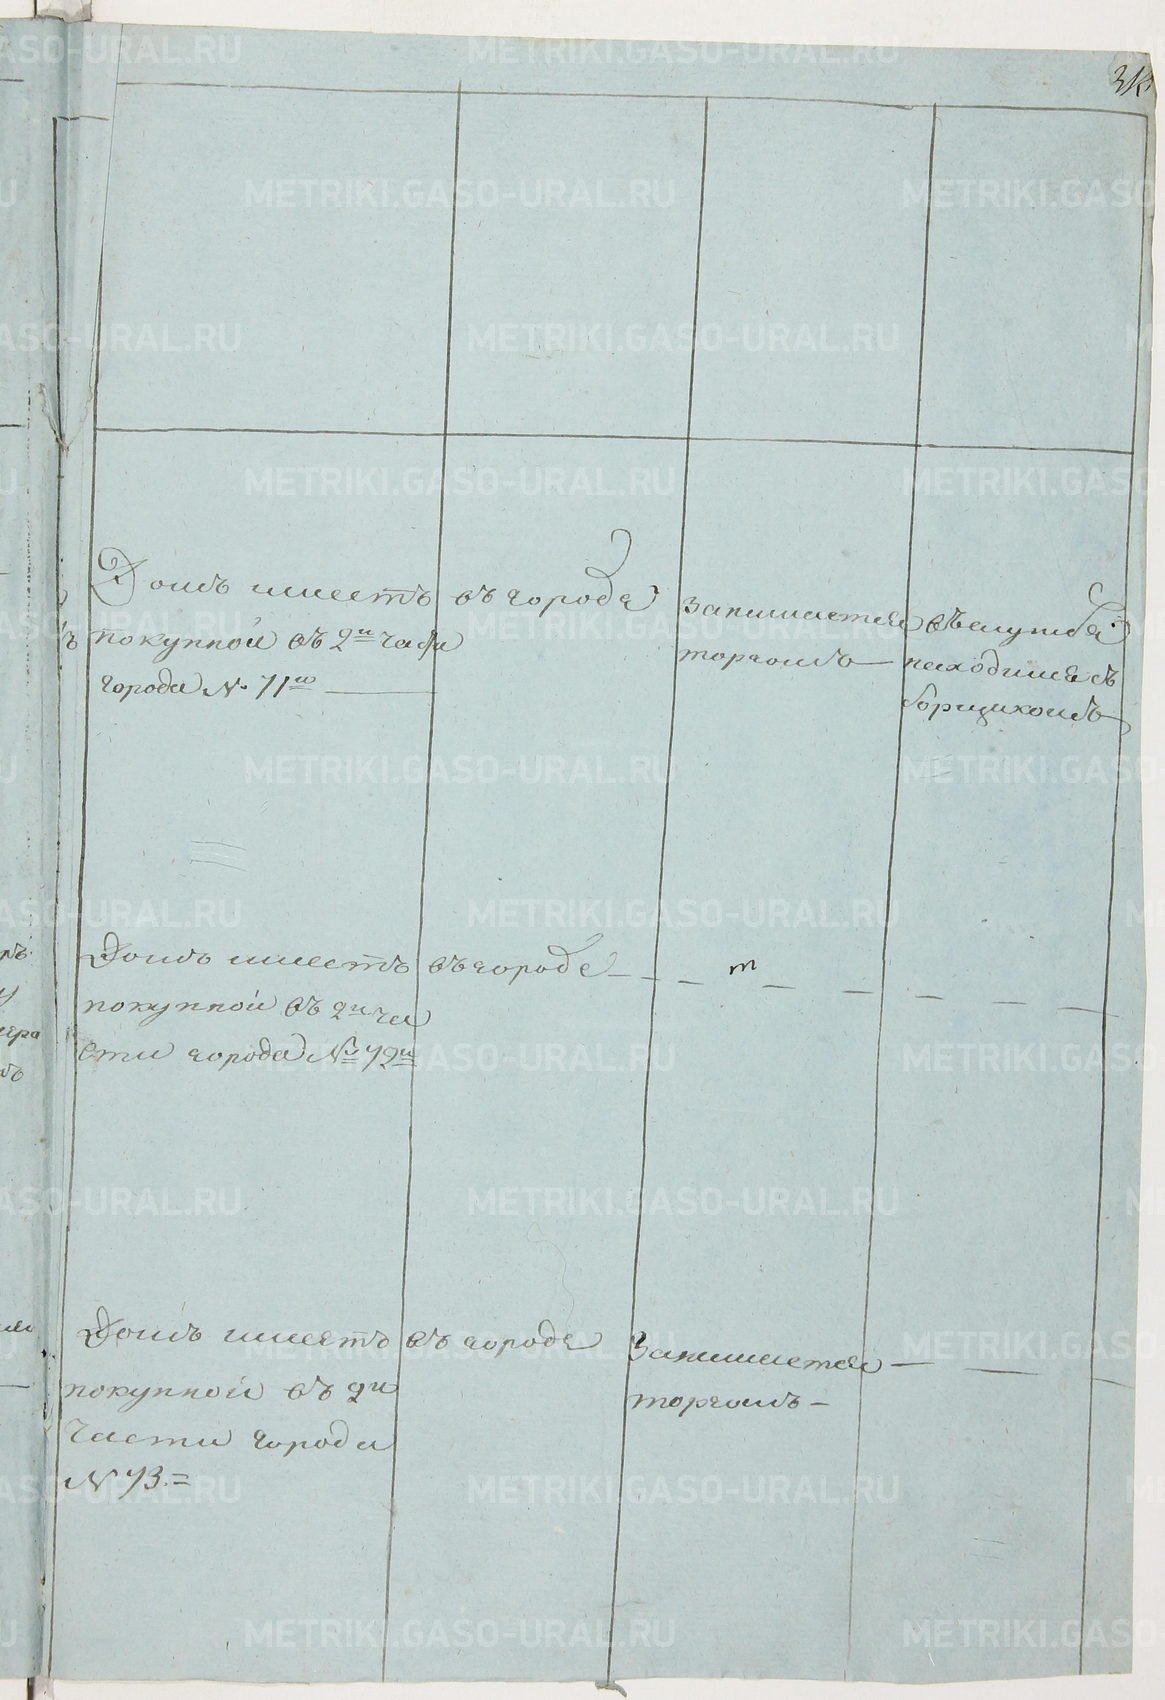 Домъ имеетъ въ городе занимается въ службе
покупной въ 2й части торгомъ находился съ
города № 71ю борщикомъ
Домъ имеетъ въ городе
покупной въ 2й ча
сти города № 72й
Домъ имеетъ въ городе Занимается
покупной въ 2й торгомъ
части города
N 73.=
METRIKI.GASO-URAL.RU